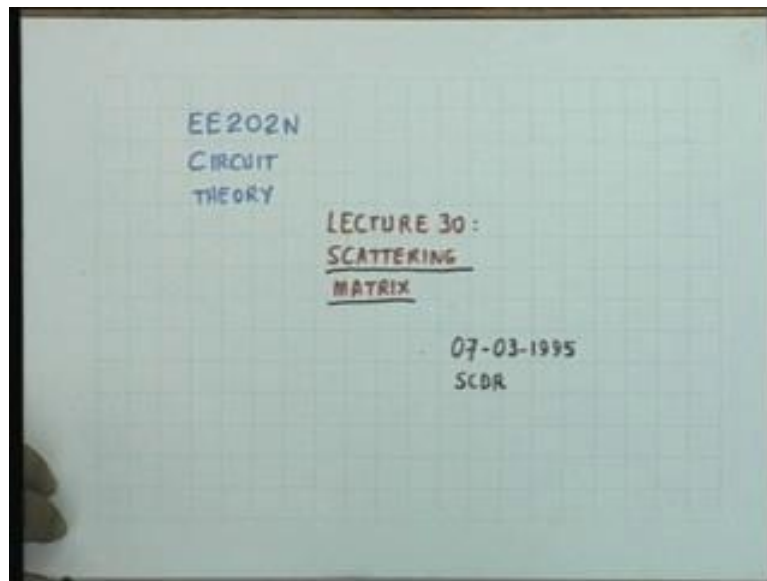 EE202N
CIRCUIT
THEORY
LECTURE 30:
SCATTERING
MATRIX
07-03-1995
SCDR